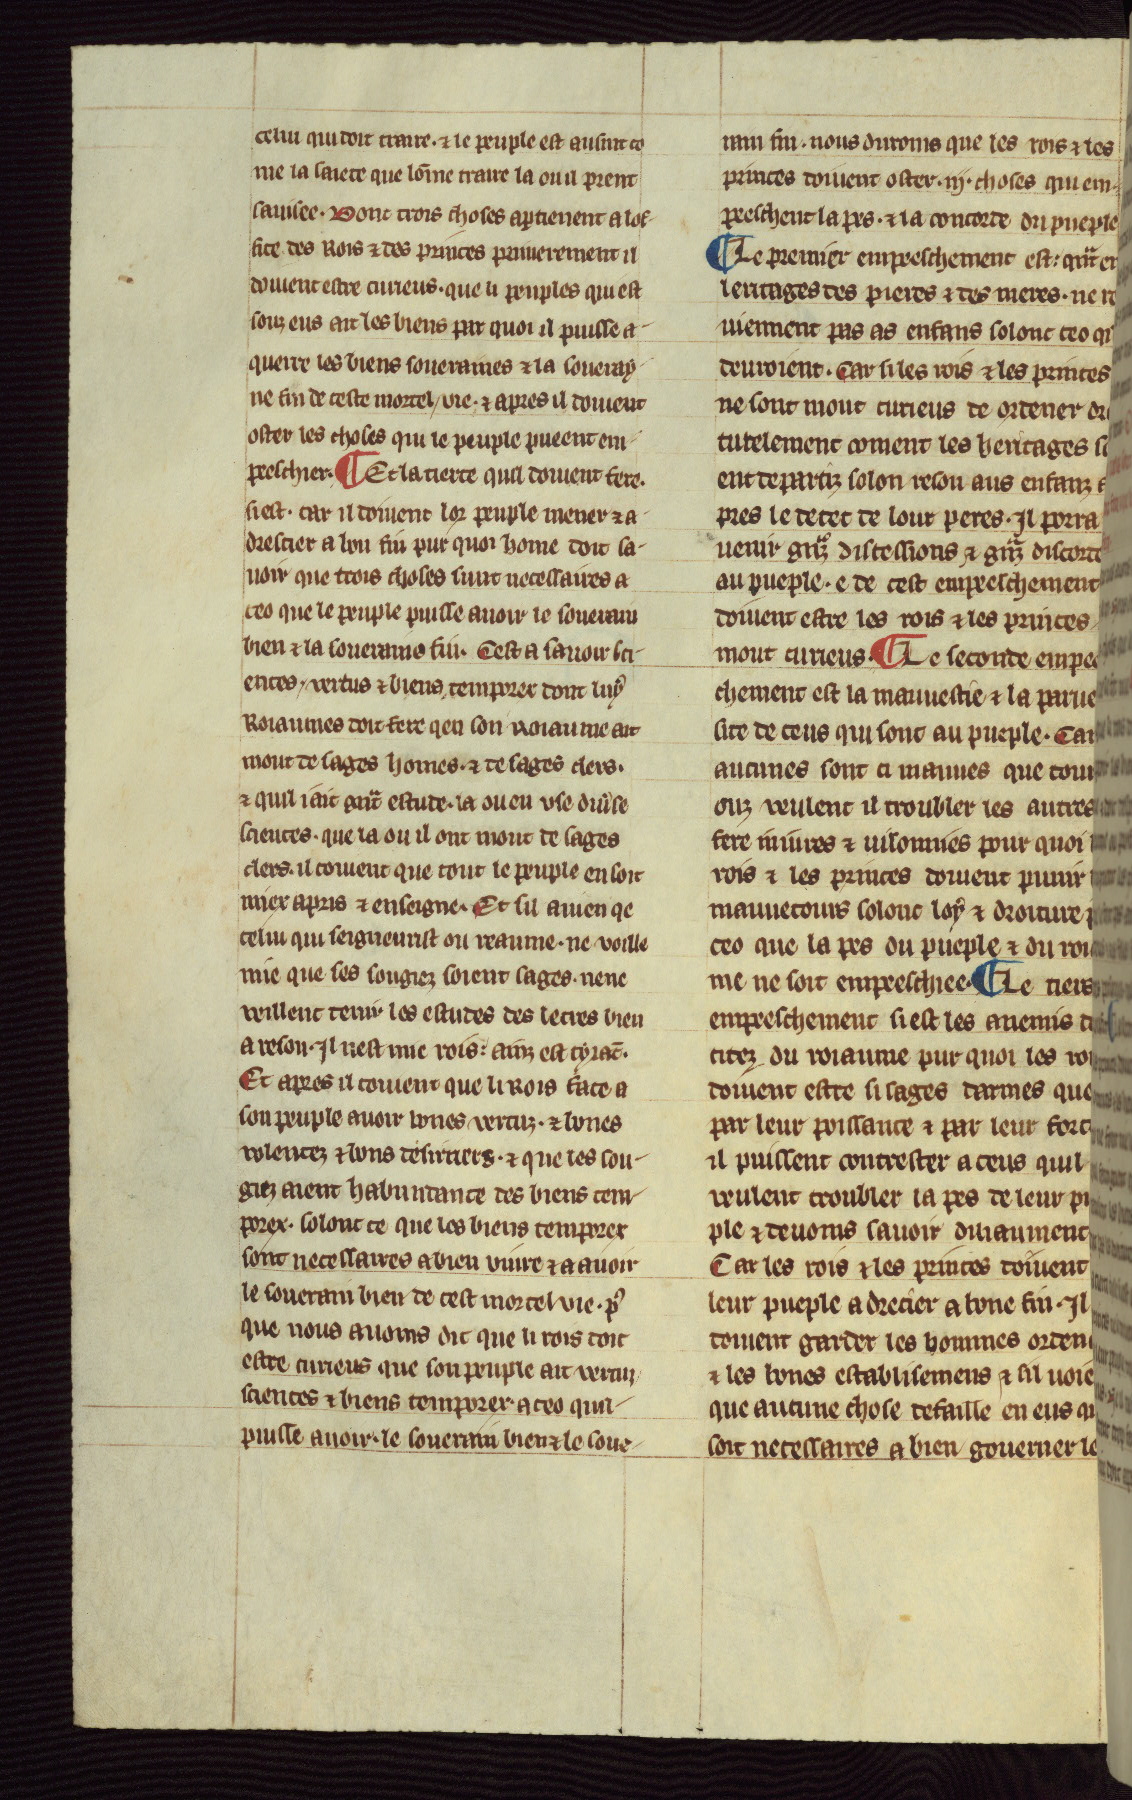 celui qui doit traire · ⁊ le peuple est ausint co
me la saiete que lōme traire la ou il prent
sauisee · Dont trois choses apartienent a lof
fice des Rois ⁊ des princes primerement il
doiuent estre curieus · que li peuples qui est
souz eus ait les biens par quoi il puisse a-
querre les biens souueraines ⁊ la soueray
ne fin de ceste mortel / vie · ⁊ apres il doiuent
oster les choses qui le peuple pueent em-
preschier · ¶ Et la tierce quil doiuent fere ·
si est · car il doiuent lor peuple mener ⁊ a-
drescier a bon fin pur quoi home doit sa-
uoir que trois choses sunt necessaires a
ceo que le peuple puisse auoir le souerain
bien ⁊ la soueraine fin · Cest a sauoir sci-
ences / vertus ⁊ biens temporex dont luy
Roiaumes doit fere qen son Roiaume ait
mout de sages homes · ⁊ de sages clers ·
⁊ quil i ait grāt estude · la ou en vse diūse
sciences · que la ou il ont mout de sages
clers · il couient que tout le peuple en soit
miex apris ⁊ enseigne · Et sil auien qe
celui qui seigneurist ou reaume · ne voille
mie que ses sougiez soient sages · nene
veillent tenir les estudes des letres bien
a reson · Il nest mie rois : ainz est tyrāt ·
Et apres il couient que li Rois face a
son peuple auoir bones vertuz · ⁊ bones
volentez ⁊ bons desirriers · ⁊ que les sou-
giez aient habundance des biens tem-
porex · solonc ce que les biens temporex
sont necessaires a bien viure ⁊ a auoir
le souerain bien de cest mortel vie · p
que nous auoms dit que li rois doit
estre curieus que son peuple ait vertuz
sciences ⁊ biens temporex · a ceo quil
puisse auoir · le souerain bien ⁊ le soue-
rain fin · nous diroms que les rois ⁊ les
princes doiuent oster · iij · choses qui em-
preschent la pes · ⁊ la concorde du pueple
¶ Le premier empreschement est : qn̄t
leritages des pieres ⁊ des meres · ne
uiennent pas as enfans solonc ceo
deuroient · Car si les rois ⁊ les princes
ne sont mout curieus de ordener
tutelement coment les heritages
ent departiz solon reson aus enfanz
pres le decet de lour peres · Il porra
uenir grāz discessions ⁊ grāz discorde
au pueple · e de cest empreschement
doiuent estre les rois ⁊ les princes
mout curieus · ¶ Le seconde empes
chement est la mauuestie ⁊ la parue
site de ceus qui sont au pueple · Car
aucunes sont ci mauues que
ouz veulent il troubler les autres
fere iniures ⁊ uilonnies pour quoi
rois ⁊ les princes doiuent punir
mauuetours solonc loy ⁊ droiture
ceo que la pes du pueple ⁊ du roi
me ne soit empreschiee · ¶ Le tiers
empreschement si est les anemis
citez du roiaume pur quoi les
doiuent estre si sages darmes que
par leur poissance ⁊ par leur force
il puissent contrester a ceus quil
veulent troubler la pes de leur
ple ⁊ deuoms sauoir
Car les rois ⁊ les princes doiuent
leur pueple adrecier a bone fin · Il
doiuent garder les hommes
⁊ les bones establisemens ⁊ sil
que aucune chose defaille en eus
soit necessaires a bien gouerner le